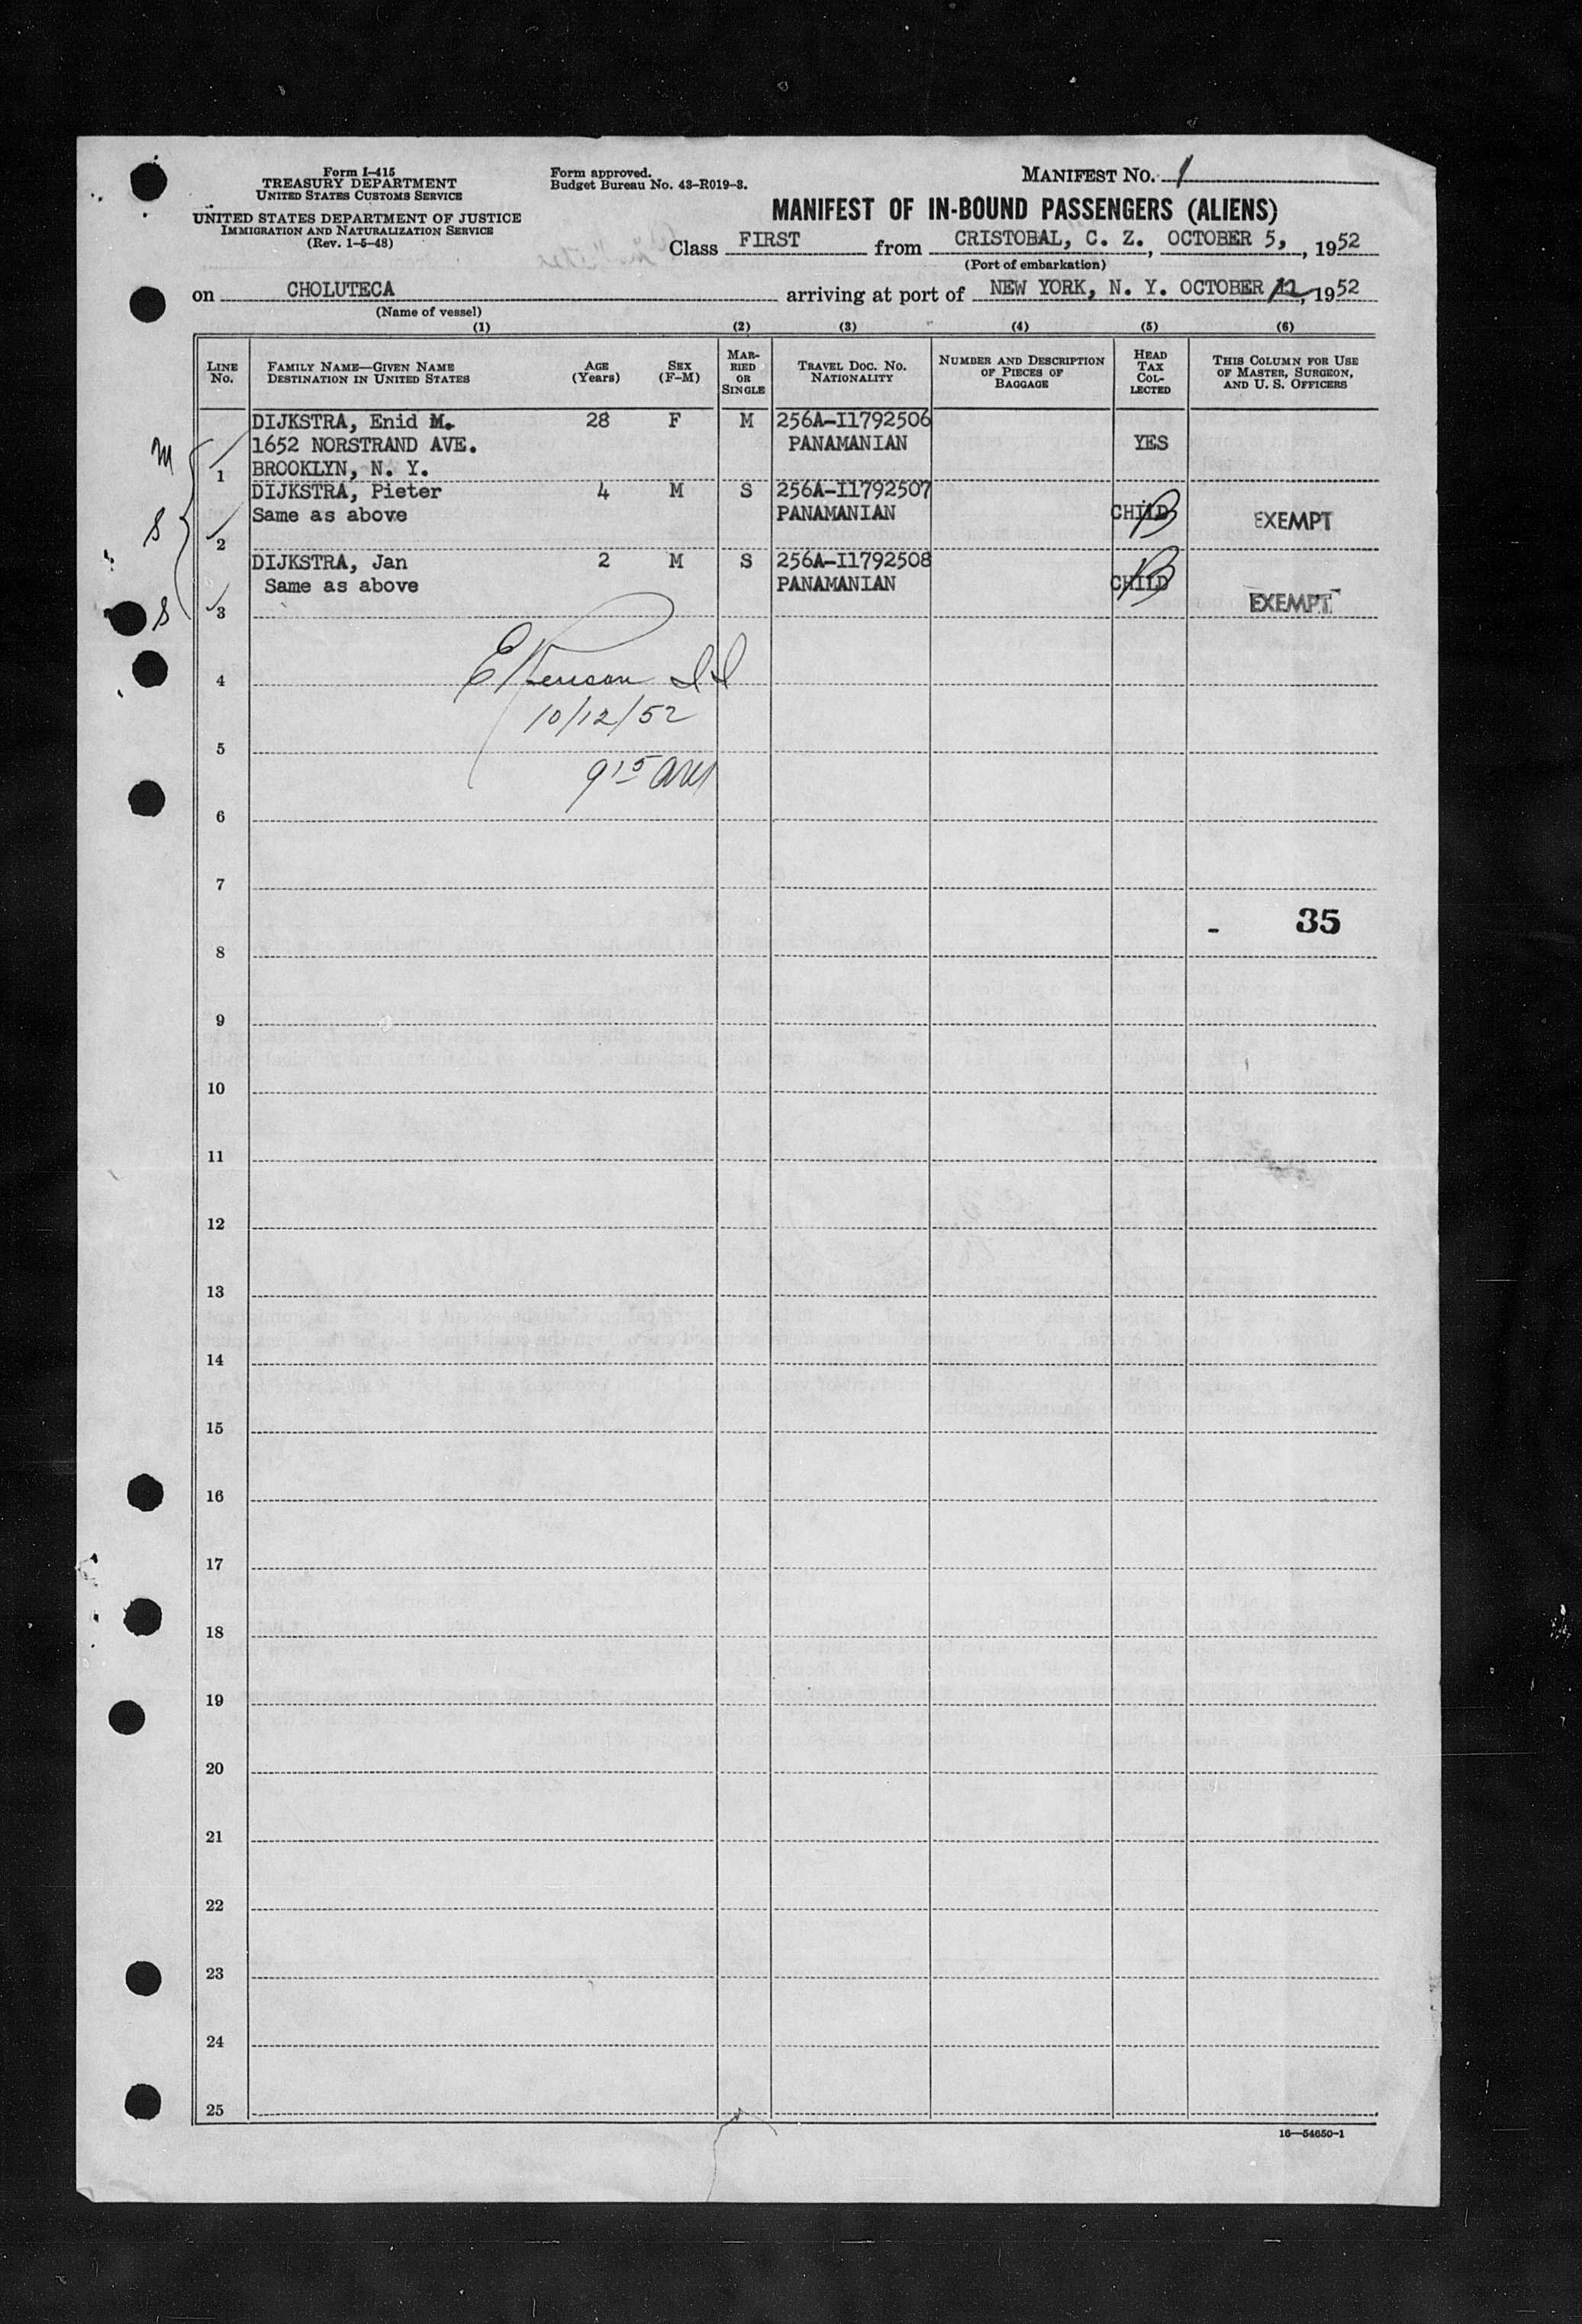 Form I-415
TREASURY DEPARTMENT
UNITED STATES CUSTOMS SERVICE
UNITED STATES DEPARTMENT OF JUSTICE
IMMIGRATION AND NATURALIZATION SERVICE
(Rev. 1-5-48)
Form approved.
Budget Bureau No. 43-R019-3.
MANIFEST NO. 1
MANIFEST OF IN-BOUND PASSENGERS (ALIENS)
Class FIRST from CRISTOBAL, C. Z., OCTOBER 5, 1952
(Port of embarkation)
on CHOLUTECA arriving at port of NEW YORK, N. Y. OCTOBER 12, 1952
(Name of vessel)
(1) (2) (3) (4) (5) (6)
LINE No. FAMILY NAME—GIVEN NAME DESTINATION IN UNITED STATES AGE (Years) SEX (F-M) MARRIED OR SINGLE TRAVEL DOC. NO. NATIONALITY NUMBER AND DESCRIPTION OF PIECES OF BAGGAGE HEAD TAX COLLECTED THIS COLUMN FOR USE OF MASTER, SURGEON, AND U. S. OFFICERS
DIJKSTRA, Enid M. 28 F M 256A-I1792506
M 1652 NORSTRAND AVE. PANAMANIAN YES
1 BROOKLYN, N. Y.
DIJKSTRA, Pieter 4 M S 256A-I1792507
S Same as above PANAMANIAN CHILD EXEMPT
2
DIJKSTRA, Jan 2 M S 256A-I1792508
Same as above PANAMANIAN CHILD EXEMPT
S 3
4
10/12/52
5
9 15 AM
6
7
- 35
8
9
10
11
12
13
14
15
16
17
18
19
20
21
22
23
24
25
16—54650-1